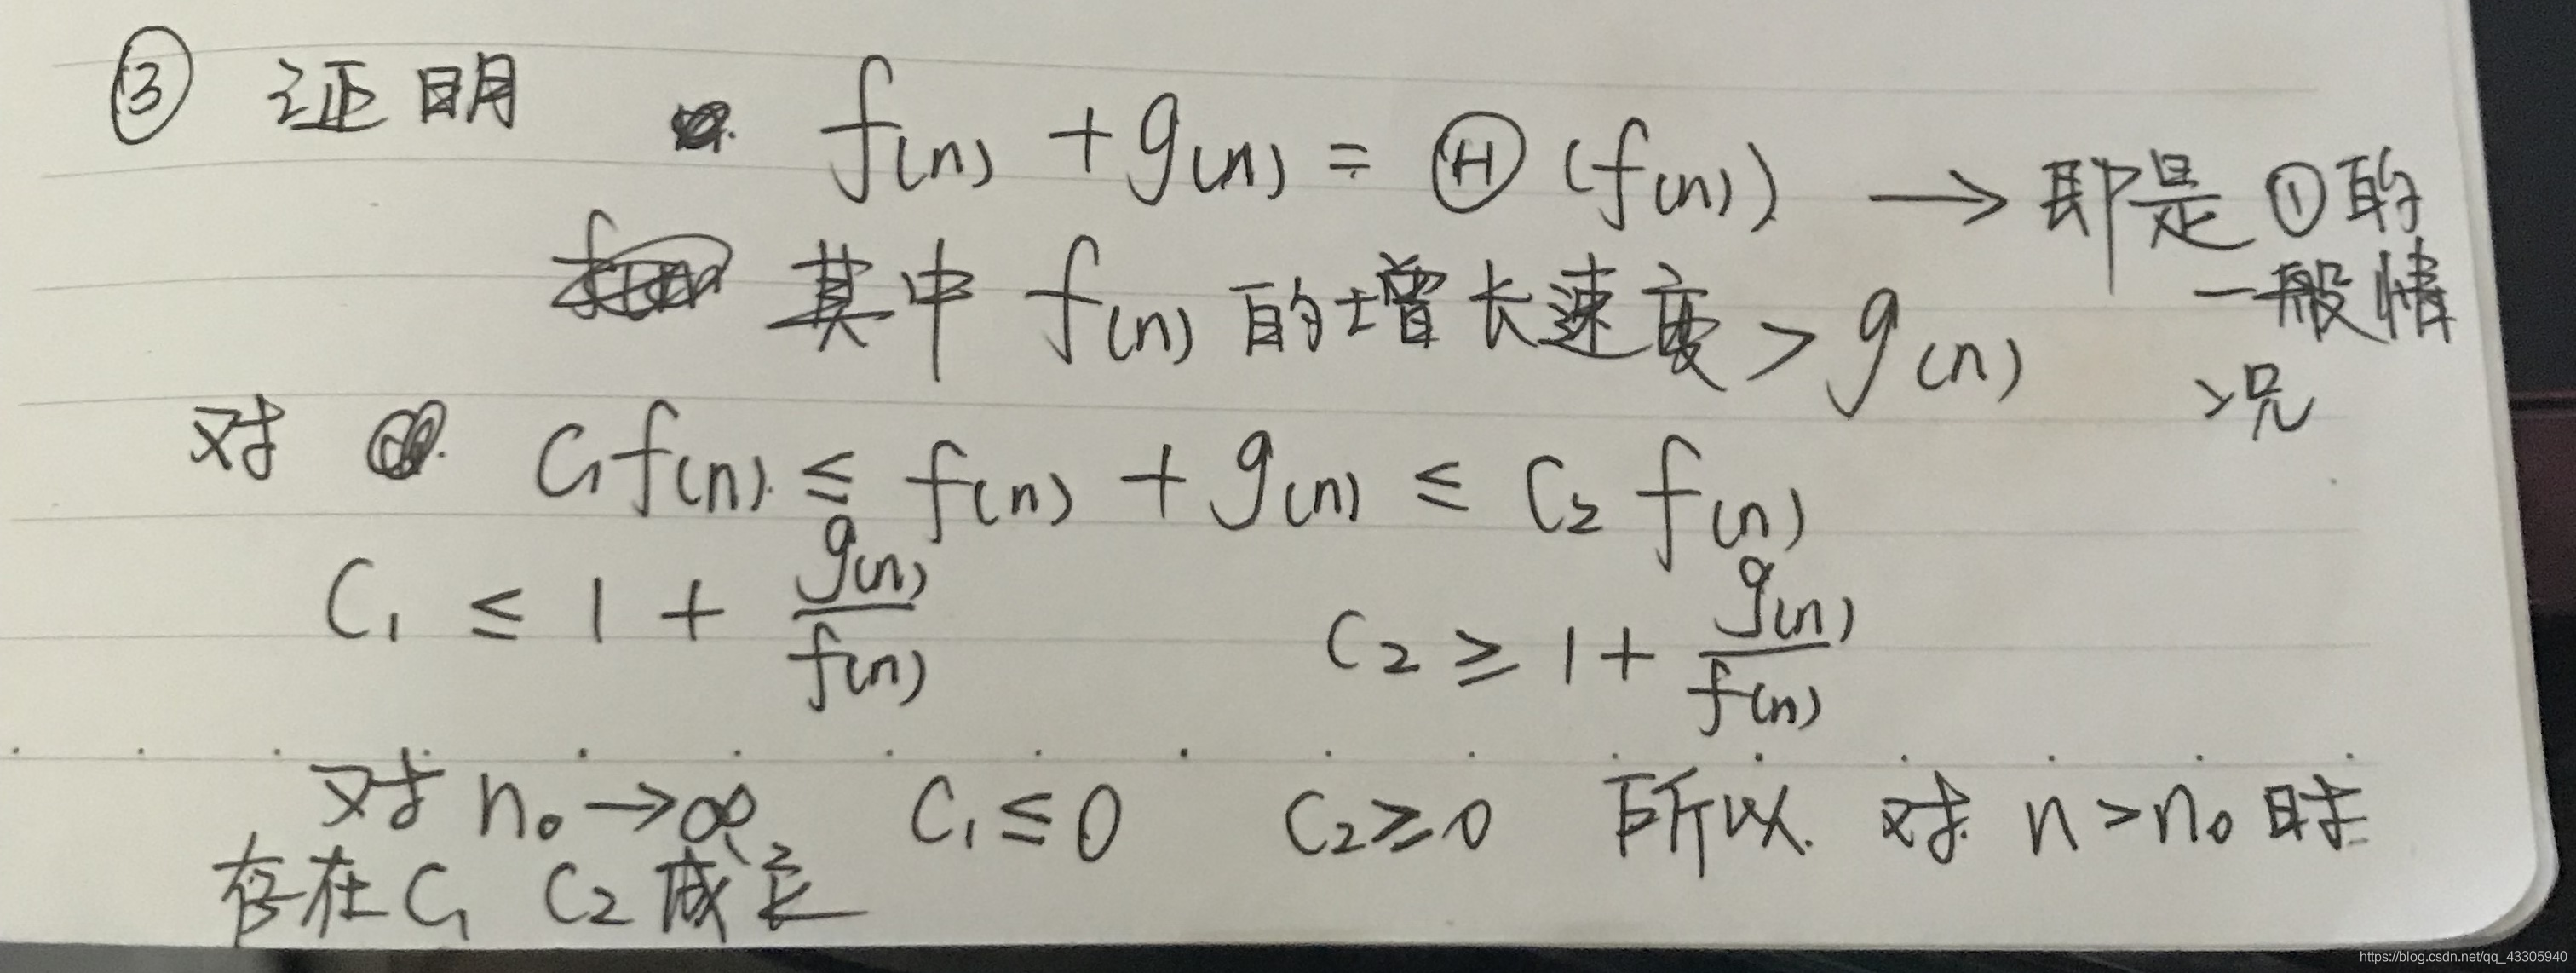 ③ 证明 f(n) + g(n) = Θ (f(n)) → 即是①的
一般情
况
其中 f(n) 的增长速度 > g(n)
对 C₁f(n) ≤ f(n) + g(n) ≤ C₂ f(n)
C₁ ≤ 1 + g(n)/f(n) C₂ ≥ 1 + g(n)/f(n)
对 n₀ → ∞ C₁ ≤ 0 C₂ ≥ 0 所以 对 n > n₀ 时
存在 C₁ C₂ 成立
https://blog.csdn.net/qq_43305940